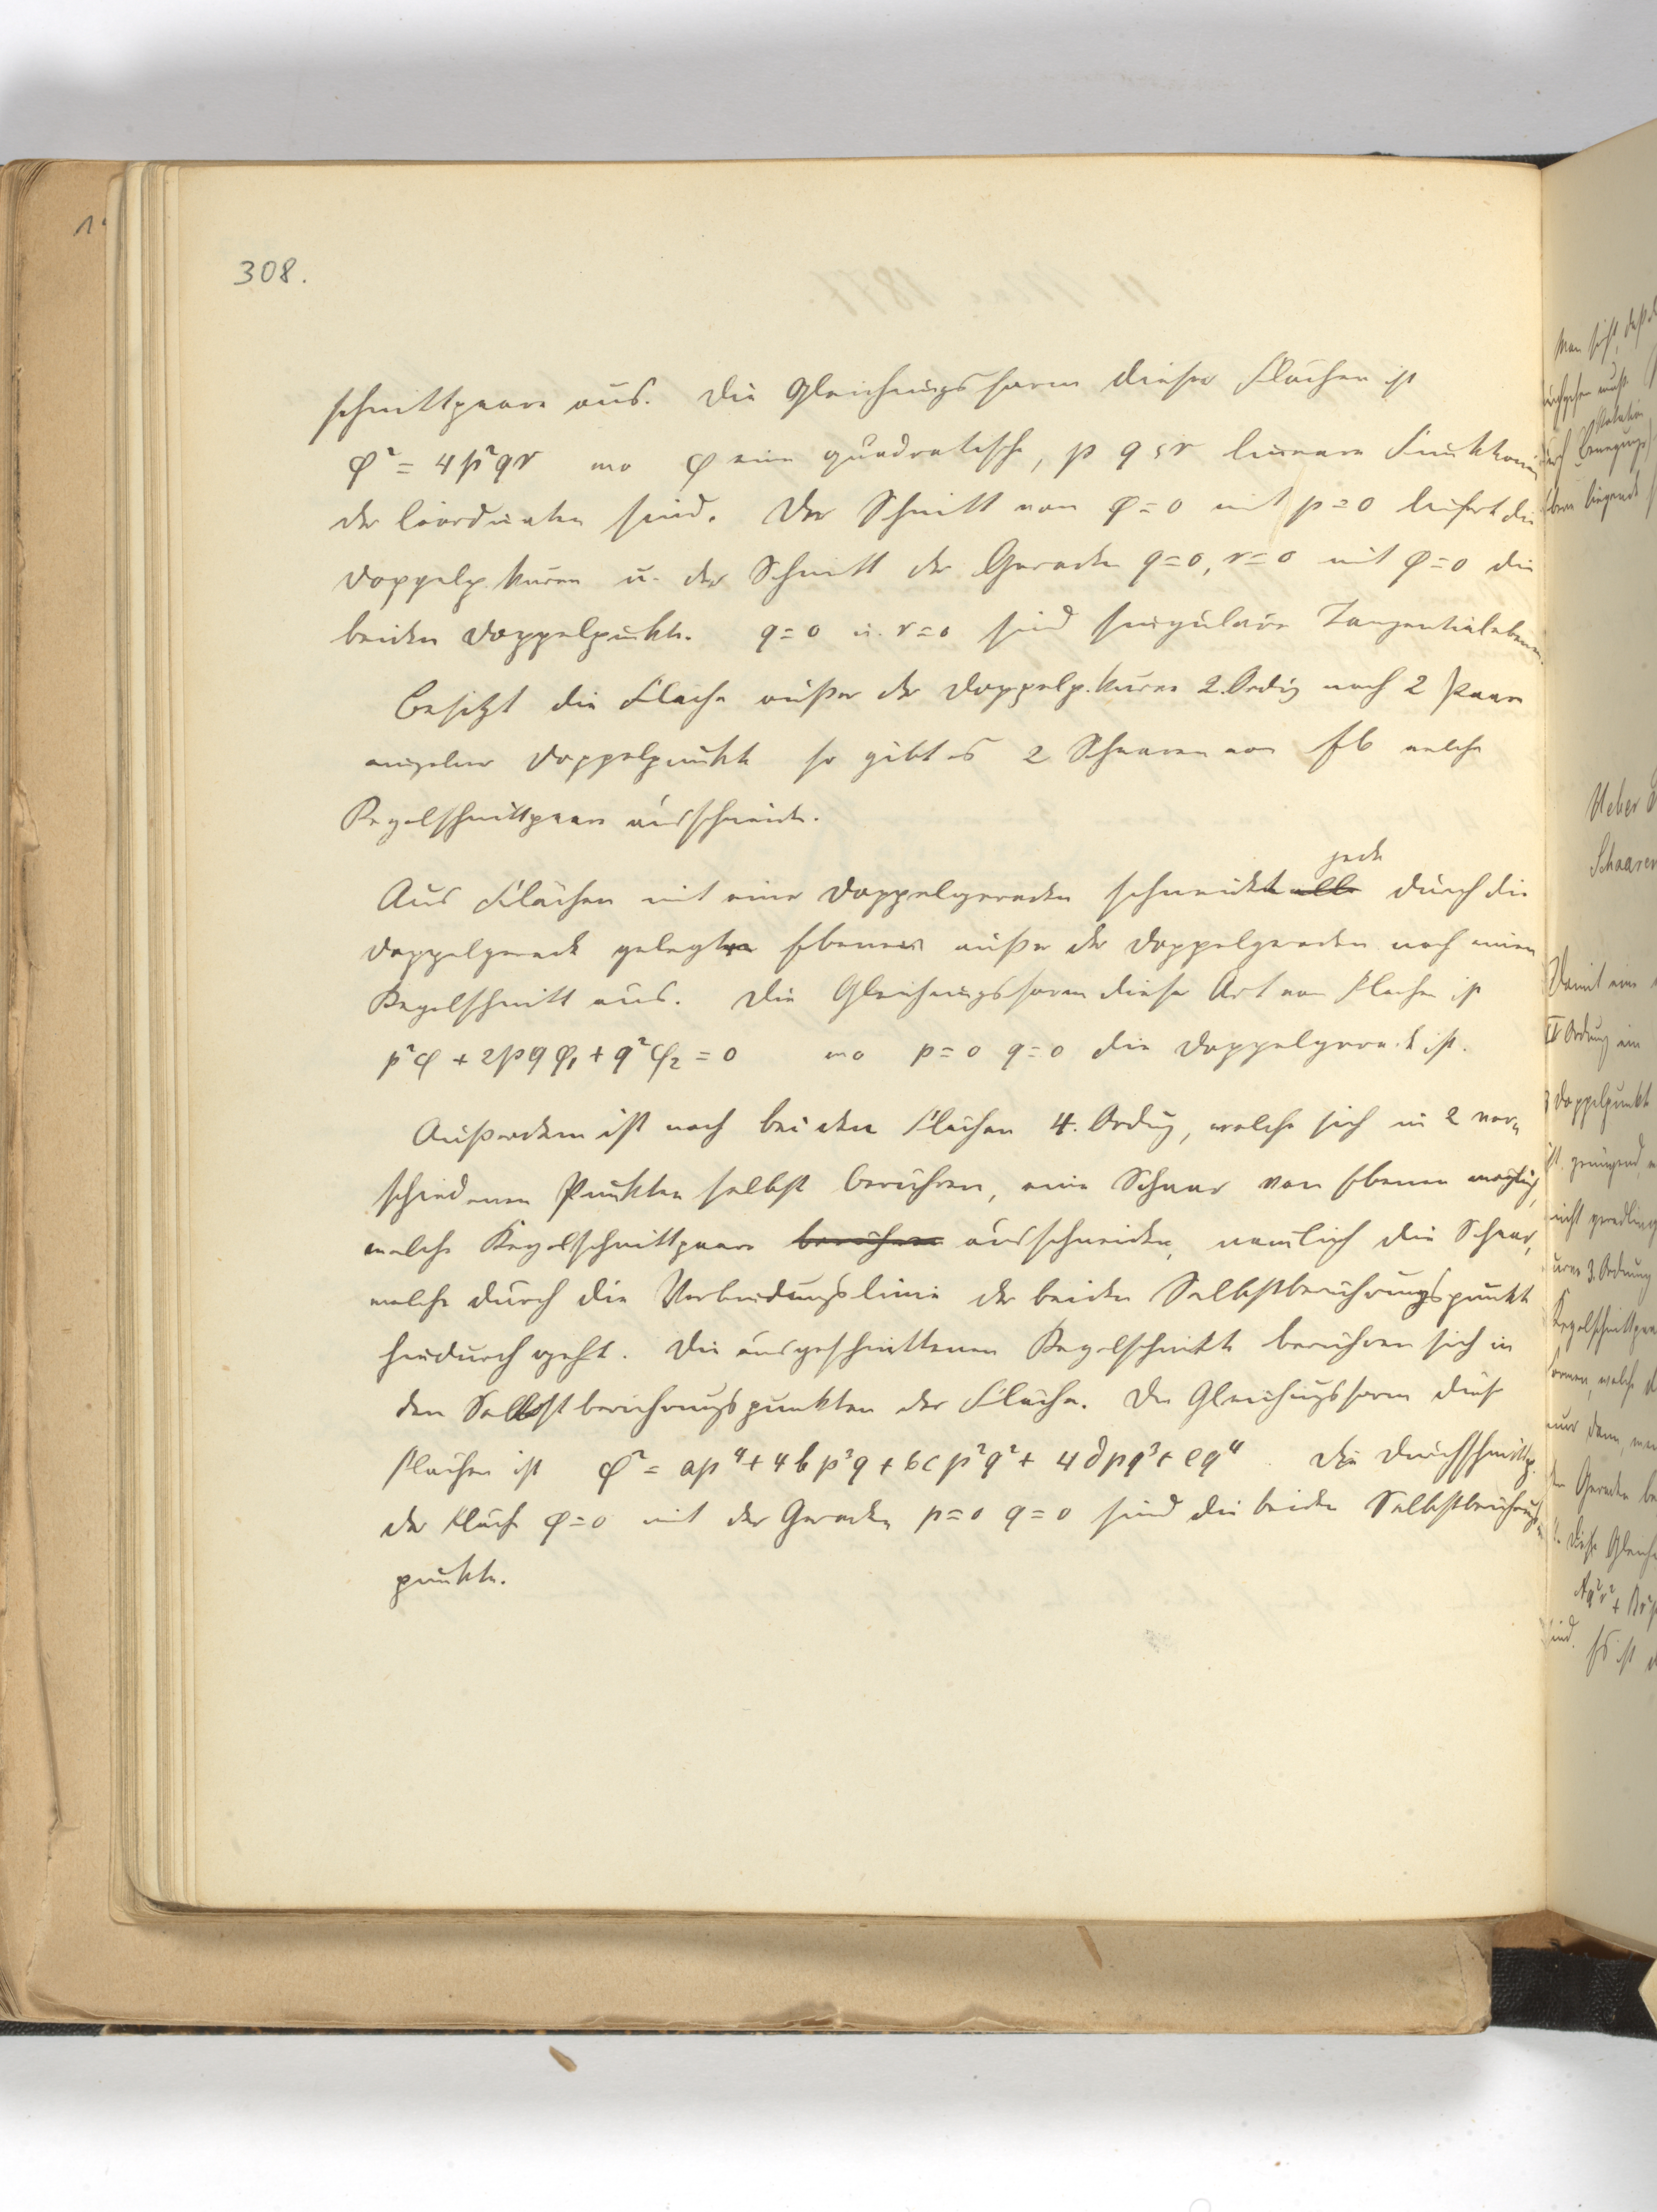 308.
schnittpaare aus. Die Gleichungsform dieser Flächen ist
φ² = 4p²qr wo φ eine quadratische, p q r lineare Funktionen
der Coordinaten sind. Der Schnitt von φ=0 mit p=0 liefert die
Doppelp.kurve u. der Schnitt der Geraden q=0, r=0 mit φ=0 die
beiden Doppelpunkte. q=0 u. r=0 sind singuläre Tangentialebenen.
Besitzt die Fläche außer der Doppelp.kurve 2. Ordg noch 2 Paare
einzelner Doppelpunkte so gibt es 2 Schaaren von Eb welche
Kegelschnittpaare ausschneiden.
jede
Aus Flächen mit einer Doppelgeraden schneidet alle durch die
Doppelgerade gelegte Ebene außer der Doppelgeraden noch einen
Kegelschnitt aus. Die Gleichungsform dieser Art von Flächen ist
p²φ + 2pqφ₁ + q²φ₂ = 0 wo p=0 q=0 die Doppelgerade ist.
Außerdem ist noch bei den Flächen 4. Ordng, welche sich in 2 ver-
schiedenen Punkten selbst berühren, eine Schaar von Ebenen möglich,
welche Kegelschnittpaare berühren ausschneiden, nämlich die Schaar,
welche durch die Verbindungslinie der beiden Selbstberührungspunkte
hindurch geht. Die ausgeschnittenen Kegelschnitte berühren sich in
den Selbstberührungspunkten der Fläche. Die Gleichungsform dieser
Flächen ist φ² = ap⁴ + 4bp³q + 6cp²q² + 4dpq³ + eq⁴. Die Durchschnittsp.
der Fläche φ=0 mit der Geraden p=0 q=0 sind die beiden Selbstberührungs-
punkte.
Man sieht, daß
Rotation
Ueber
Schaaren
Damit eine
II Ordnung ein
3 Doppelpunkte
ist, genügend,
nicht geradlinig
3. Ordnung
Kegelschnittpaa
welche d
nur dann, we
der Geraden be
Diese Gleich
Aq²r² +
sind. Es ist